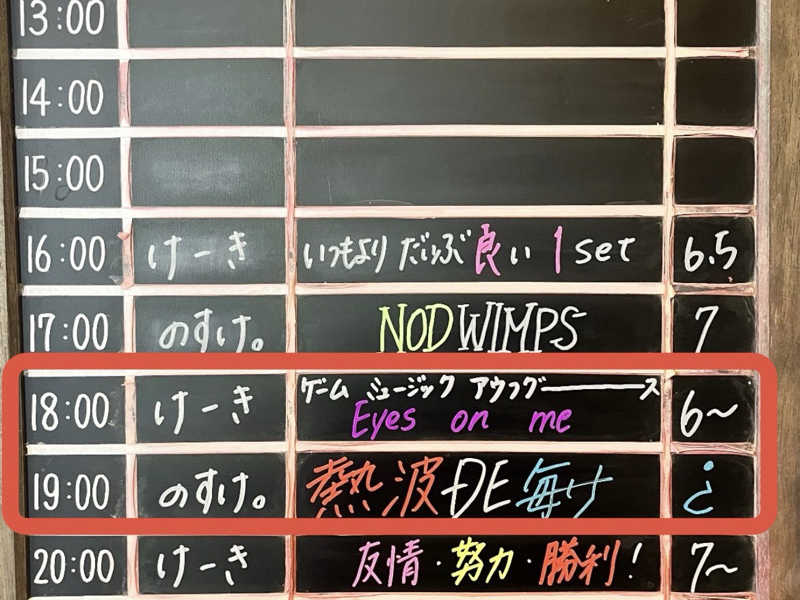 13:00
14:00
15:00
16:00 けーき いつもより だいぶ良い 1set 6.5
17:00 のすけ。 NODWIMPS 7
18:00 けーき ゲーム ミュージック アウフグース
Eyes on me 6~
19:00 のすけ。 熱波DE毎け ¿
20:00 けーき 友情・努力・勝利! 7~